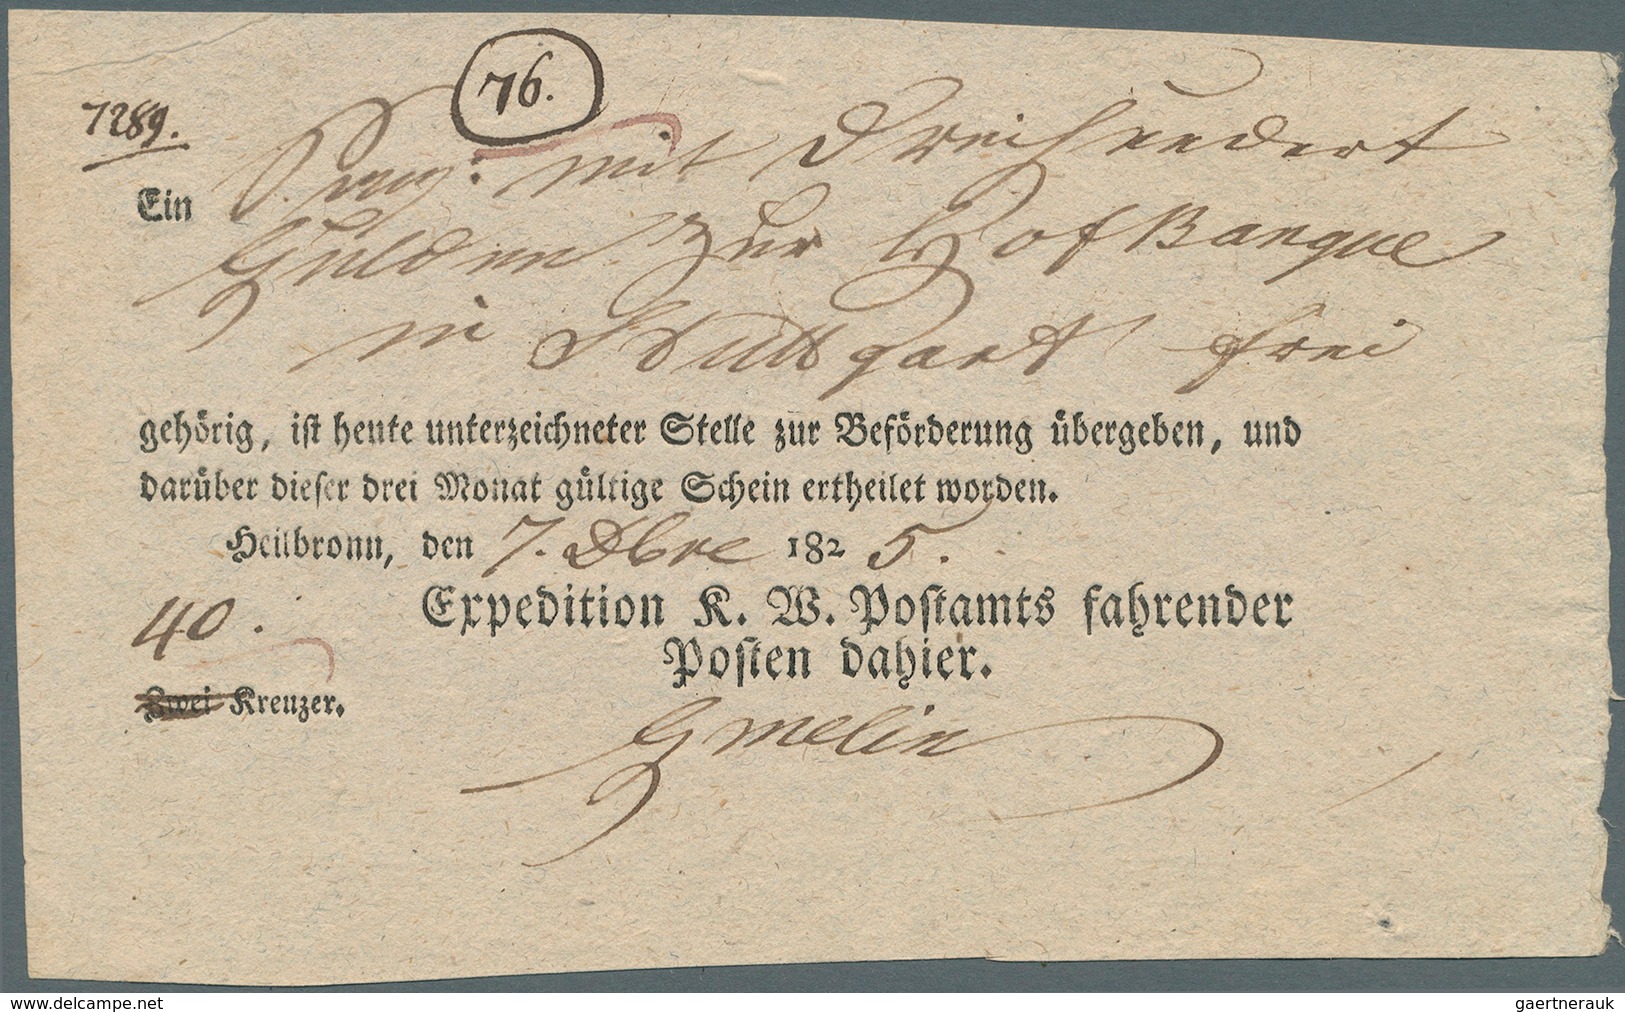 76.
7289.
Ein mit Dreihundert
Gulden zur Hof Banque
in Stuttgart frei
gehörig, ist heute unterzeichneter Stelle zur Beförderung übergeben, und
darüber dieser drei Monat gültige Schein ertheilet worden.
Heilbronn, den 7. Dbre 1825.
40.
Expedition K. W. Postamts fahrender
Posten dahier.
Zwei Kreuzer.
Gmelin
www.delcampe.net
gaertnerauk